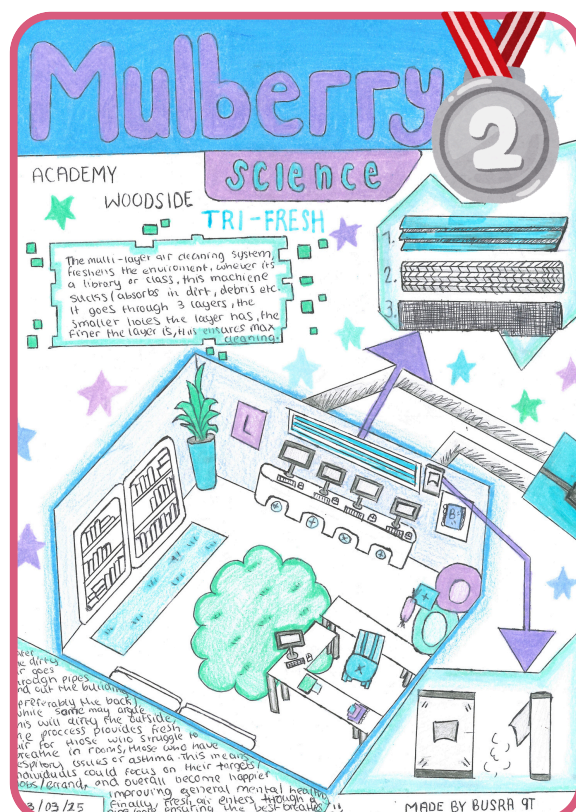 Mulberry
2
science
ACADEMY
WOODSIDE
TRI-FRESH
The multi-layer air cleaning system,
freshens the enviroment, whever its
a library or class, this machiene
sucks/absorbs in dirt, debris etc
It goes through 3 layers, the
smaller holes the layer has, the
finer the layer is, this ensures max
cleaning.
1.
2.
3.
L
dirty
goes
through pipes
out the building
preferably the back,
while some may argue
this will dirty the outside,
proccess provides fresh
air for those who struggle to
breathe in rooms, those who have
issues or asthma. This means
individuals could focus on their targets/
jobs/errand, and overall become happier
improving general mental health
Finally fresh air enters through a
ensuring the best breathes
3/03/25
MADE BY BUSRA 9T